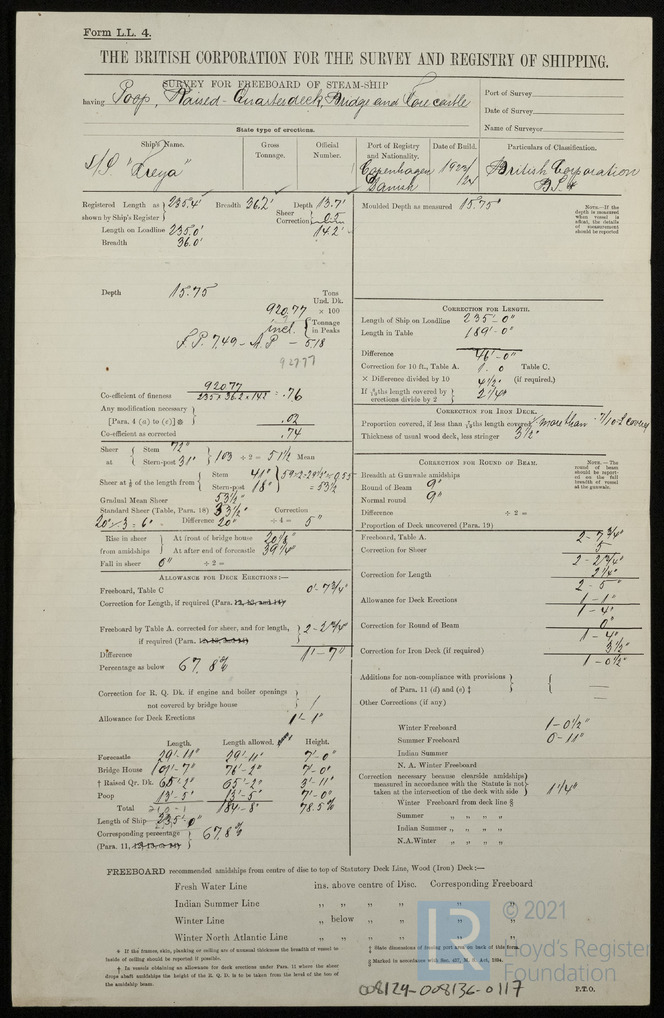 Form LL. 4.
THE BRITISH CORPORATION FOR THE SURVEY AND REGISTRY OF SHIPPING.
SURVEY FOR FREEBOARD OF STEAM-SHIP
having Poop, Raised-Quarterdeck, Bridge and Forecastle
State type of erections.
Port of Survey
Date of Survey
Name of Surveyor
Ship's Name. Gross Tonnage. Official Number. Port of Registry and Nationality. Date of Build. Particulars of Classification.
S/S "Freya" Copenhagen Danish 1923/12 British Corporation B.S.*
Registered Length as shown by Ship's Register 235.4' Breadth 36.2' Depth 13.7'
Sheer Correction 0.5
Length on Loadline 235.0' 14.2'
Breadth 36.0'
Depth 15.75
Tons Und. Dk.
920.77 × 100
incl. Tonnage in Peaks
F.P. 7.49 - A.P - 5.18
92077
Co-efficient of fineness 92077 / 235 × 36.2 × 14.2 = .76
Any modification necessary [Para. 4 (a) to (e)] .02
Co-efficient as corrected .74
Sheer at Stem 72" Stern-post 31" 103 ÷ 2 = 51½ Mean
Sheer at ⅛ of the length from Stem 41" Stern-post 18" 59÷2=29½"÷0.55 = 53½"
Gradual Mean Sheer 53½"
Standard Sheer (Table, Para. 18) 33½" Correction
20"÷3=6" Difference 20" ÷ 4 = 5"
Rise in sheer from amidships At front of bridge house 20⅛"
At after end of forecastle 39¼"
Fall in sheer 0" ÷ 2 =
ALLOWANCE FOR DECK ERECTIONS:—
Freeboard, Table C 0'-7¾"
Correction for Length, if required (Para. 12, 13, and 14)
Freeboard by Table A. corrected for sheer, and for length, if required (Para. 2-2¾"
Difference 1'-7"
Percentage as below 67.8%
Correction for R. Q. Dk. if engine and boiler openings not covered by bridge house /
Allowance for Deck Erections 1'-1"
Length. Length allowed. Height.
Forecastle 29'-11" 29'-11" 7'-0"
Bridge House 101'-7" 76'-2" 7'-0"
† Raised Qr. Dk. 65'-2" 65'-2" 3'-11"
Poop 13'-5" 13'-5" 7'-0"
Total 184'-8" 78.5%
Length of Ship 235'-0"
Corresponding percentage (Para. 11, 67.8%
Moulded Depth as measured 15.75'
NOTE.—If the depth is measured when vessel is afloat, the details of measurement should be reported
CORRECTION FOR LENGTH.
Length of Ship on Loadline 235'-0"
Length in Table 189'-0"
Difference 46'-0"
Correction for 10 ft., Table A. 1.0 Table C.
× Difference divided by 10 4½" (if required.)
If ⁶⁄₁₀ths length covered by erections divide by 2 2¼"
CORRECTION FOR IRON DECK.
Proportion covered, if less than ⁷⁄₁₀ths length covered more than 7/10ths covered
Thickness of usual wood deck, less stringer 3½"
CORRECTION FOR ROUND OF BEAM.
NOTE.—The round of beam should be reported on the full breadth of vessel at the gunwale.
Breadth at Gunwale amidships
Round of Beam 9"
Normal round 9"
Difference ÷ 2 =
Proportion of Deck uncovered (Para. 19)
Freeboard, Table A. 2-7¾"
Correction for Sheer 5
2-2¾"
Correction for Length 2¼"
2-5
Allowance for Deck Erections 1-1"
1-4"
Correction for Round of Beam 0"
1-4"
Correction for Iron Deck (if required) 3½"
1-0½"
Additions for non-compliance with provisions of Para. 11 (d) and (e) ‡
Other Corrections (if any)
Winter Freeboard 1-0½"
Summer Freeboard 0-11"
Indian Summer
N. A. Winter Freeboard
Correction necessary because clearside amidships measured in accordance with the Statute is not taken at the intersection of the deck with side 1¼"
Winter Freeboard from deck line §
Summer „ „ „ „
Indian Summer „ „ „ „
N.A. Winter „ „ „ „
FREEBOARD recommended amidships from centre of disc to top of Statutory Deck Line, Wood (Iron) Deck:—
Fresh Water Line ins. above centre of Disc. Corresponding Freeboard
Indian Summer Line „ „ „ „ „
Winter Line „ below „ „ „
Winter North Atlantic Line „ „ „ „ „
* If the frames, skin, planking or ceiling are of unusual thickness the breadth of vessel to inside of ceiling should be reported if possible.
† In vessels obtaining an allowance for deck erections under Para. 11 where the sheer drops abaft amidships the height of the R. Q. D. is to be taken from the level of the top of the amidship beam.
‡ State dimensions of freeing port area on back of this form.
§ Marked in accordance with Sec. 437, M. S. Act, 1894.
P.T.O.
008129-008136-0117
LR
© 2021
Lloyd's Register
Foundation